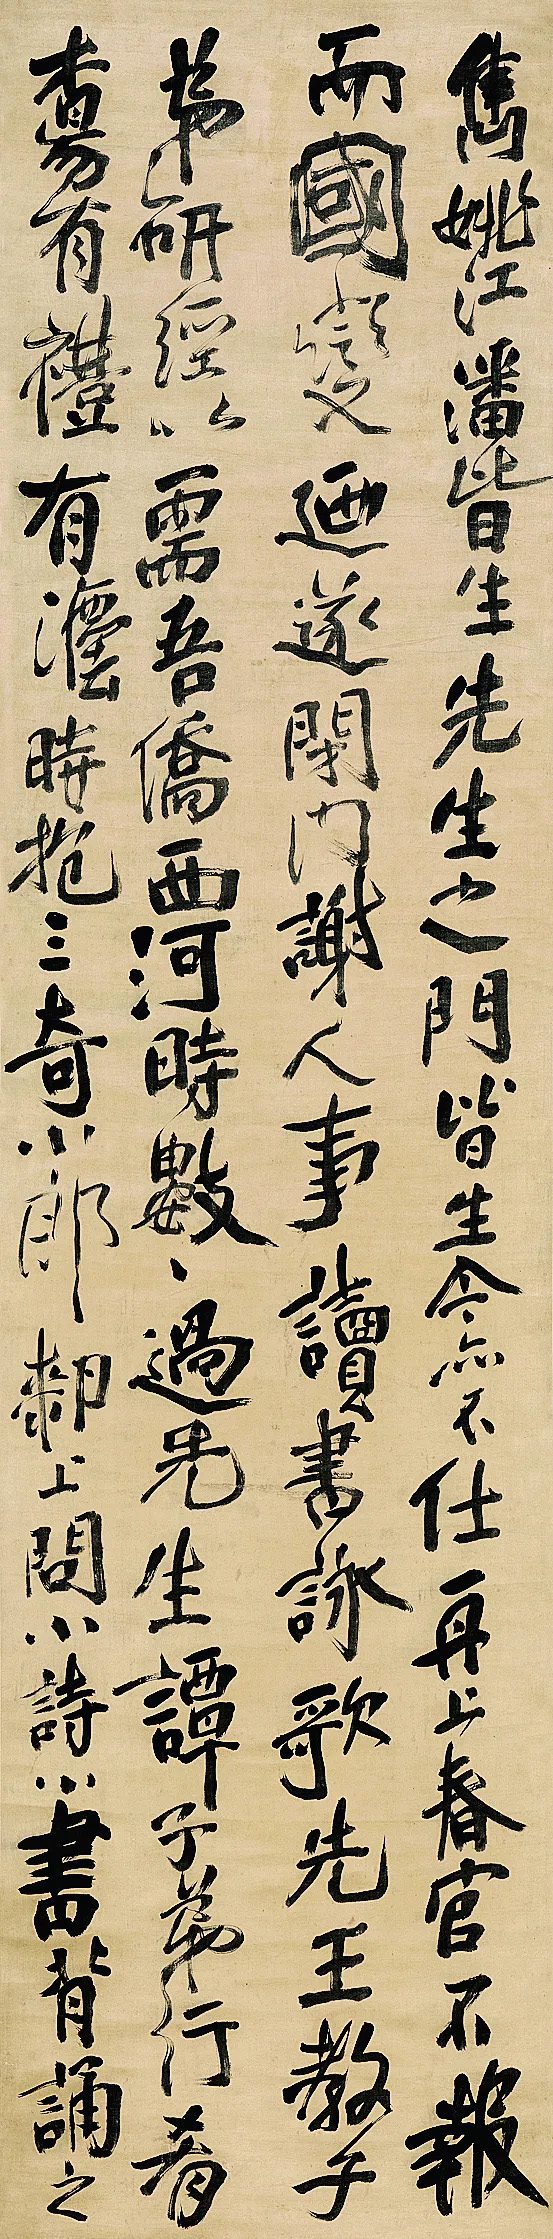 雋姚江潘皆生先生之門皆生今亦不仕再上春官不報
而國變迺遂閉門謝人事讀書詠歌先王教子
弟研經以需吾儕西河時數〻過先生譚子弟行肴
有禮有灋時抱三奇小郎上問小詩小書背誦之